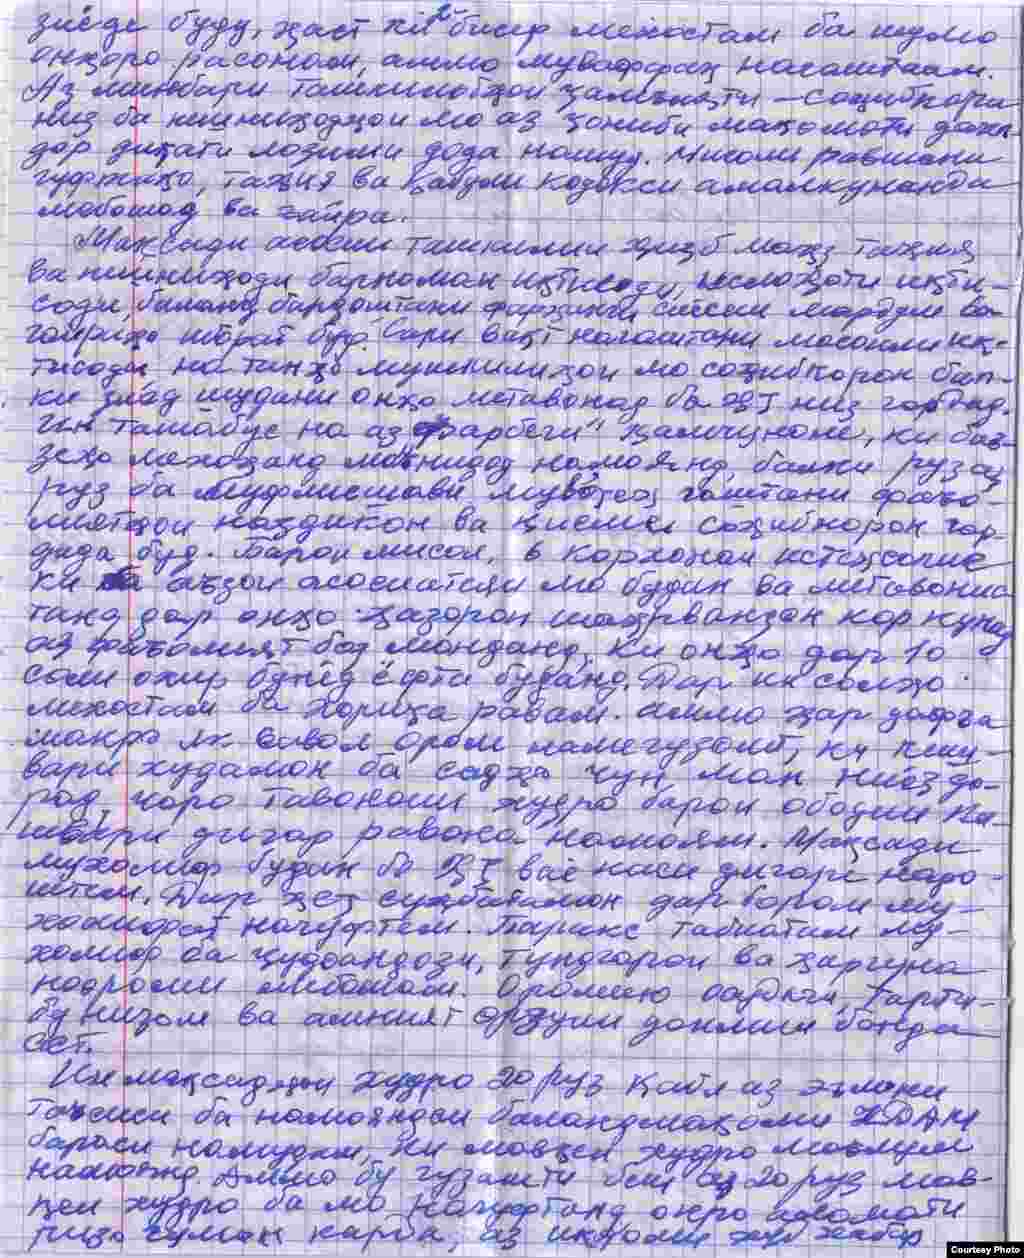 зиёде буду, ҳаст ки бисёр мехостам ба шумо
онҳоро расонам, аммо муваффақ нагаштаам.
Аз минбари Ташкилотҳои ҷамъияти – соҳибкори
низ ба пешниҳодҳои мо аз ҷониби мақомоти дахл
дор диққати лозими дода нашуд. Мисоли равшани
гуфтаҳо, таҳия ва қабули Кодекси амалкунанда
мебошад ва ғайра.
Мақсади асосии ташкилии ҳизб маҳз таҳия
ва пешниҳоди барномаи иқтисоди, ислоҳоти иқти-
соди, баланд бардоштани фарҳанги сиёсии мардум ва
ғайраҳо иборат буд. Сари вақт нагаштани масоили иқ-
тисоди на танҳо мушкилиҳои мо соҳибкорон бал-
ки зиёд шудани онҳо метавонад ба ҲТ низ гардад.
Ин ташаббус на аз ҳамчуноне, ки баъ-
зеҳо мехоҳанд намоянд, балки рӯз аз
рӯз ба муфлисшави муваҷҷаҳ гаштани фаъо-
лиятҳои наздикон ва қисми соҳибкорон гар-
дида буд. Барои мисол, 6 корхонаи истеҳсолие
ки аъзои асосиаташ мо будем ва метавонис
танд дар онҳо ҳазорон шаҳрвандон кор кунад
аз фаъолият боз монданд, ки онҳо дар 10
соли охир бунёд ёфта буданд. Дар ин солҳо
мехостам ба хориҷа равам. Аммо ҳар дафъа
маро як савол ором намегузошт, ки киш-
вари худамон ба садҳо чун ман ниёз до-
рад, чаро тавоноии худро барои ободии ки-
швари дигар равона намоям. Мақсади
мухолиф будан ба ҲТ ва ё каси дигаре надо-
штем. Дар ҳеҷ суҳбатамон дар бораи му-
холифат нагуфтем. Баръакс табиатан му-
холиф ба ҷудоандози, тундгарои ва ҳаргуна
нороми мебошам. Ороми, тарти-
бу низом ва амният орзуи доимии банда
аст.
Ин мақсадҳои худро 20 рӯз қабл аз эълони
таъсис ба намояндаи баландмақоми ХДАМ
баръси намудам, ки мавқеи худро маълум
намоянд. Аммо бу гузашти беш аз 20 рӯз мав-
қеи худро ба мо нагуфтанд онро аломати
ризо гумон карда, аз
Courtesy Photo